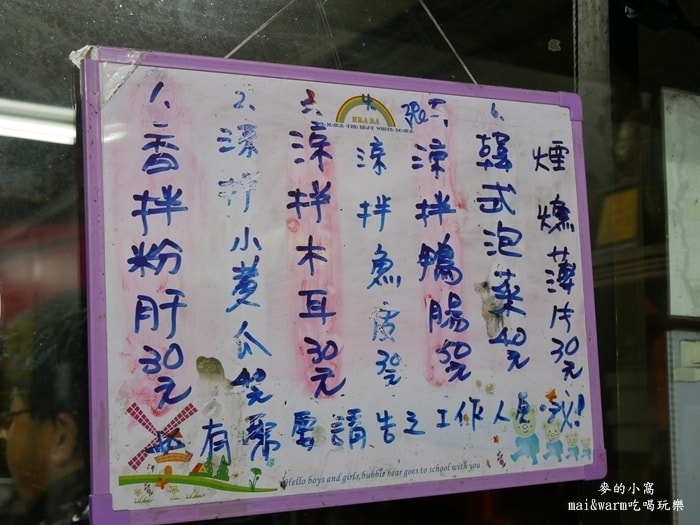 1、香拌粉肝30元
2、涼拌小黃瓜40元
3、涼拌木耳30元
4、涼拌魚皮30元
5、涼拌鴨腸50元
6、韓式泡菜40元
煙燻薄片30元
有需要請告之工作人員
Hello boys and girls, bubble bear goes to school with you
麥的小窩
mai&warm吃喝玩樂